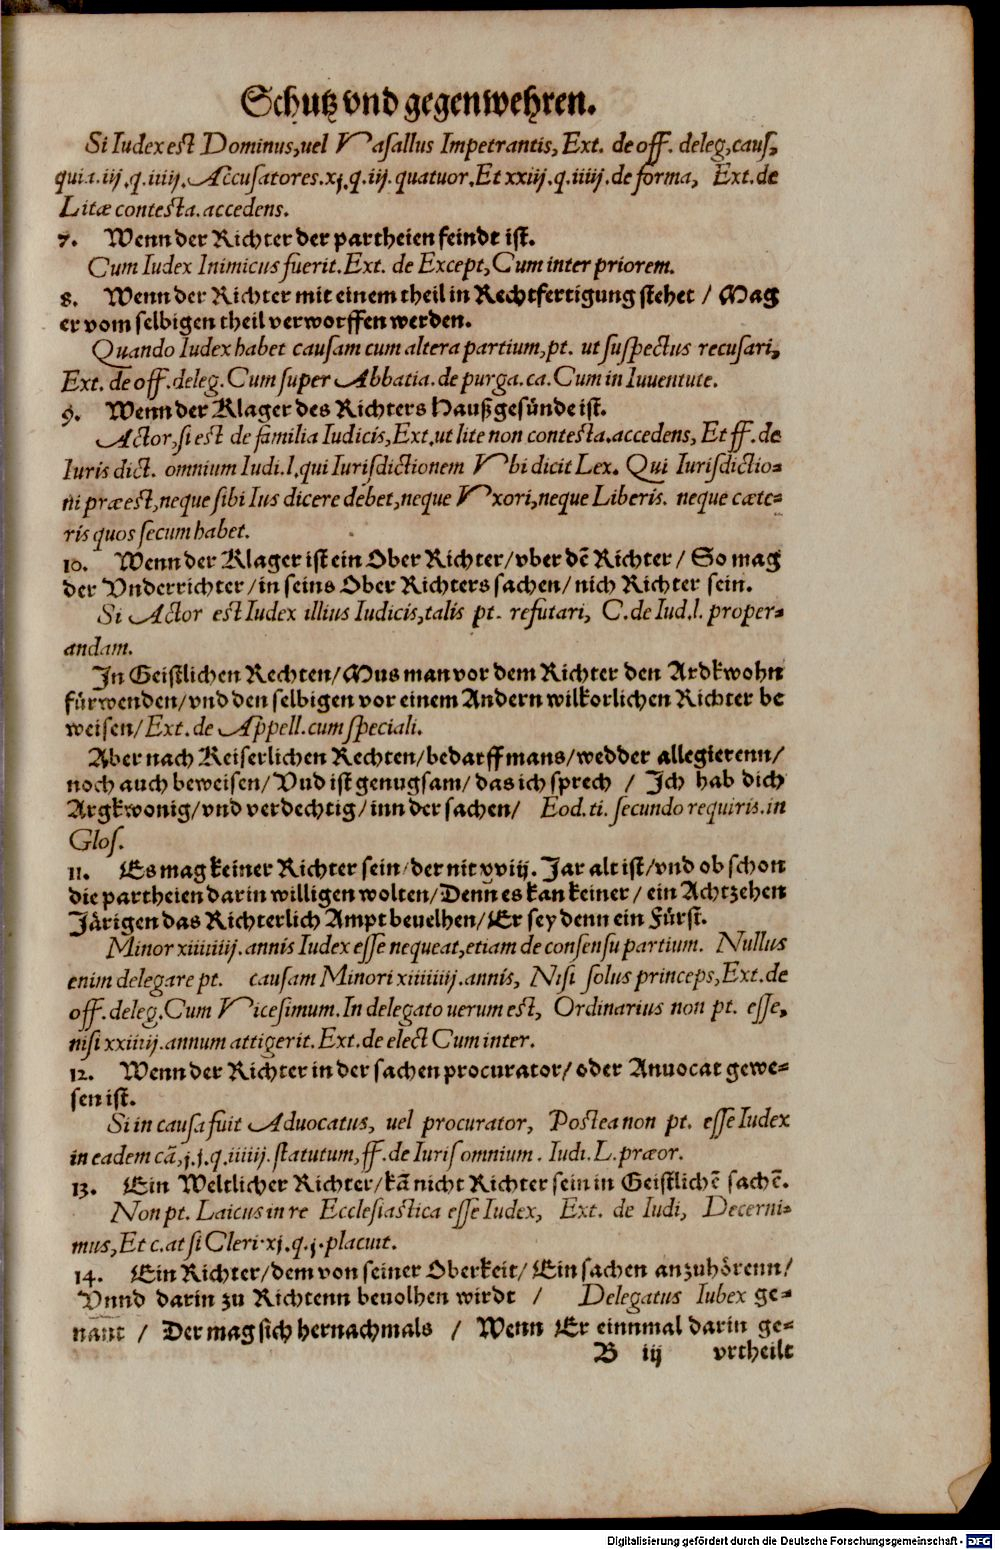 Schutz vnd gegenwehren.
Si Iudex est Dominus, uel Vasallus Impetrantis, Ext. de off. deleg, caus,
quia. iij. q. iiiij. Accusatores. xj. q. iij. quatuor. Et xxiij. q. iiiij. de forma, Ext. de
Litæ contesta. accedens.
7. Wenn der Richter der partheien feindt ist.
Cum Iudex Inimicus fuerit. Ext. de Except, Cum inter priorem.
8. Wenn der Richter mit einem theil in Rechtfertigung stehet / Mag
er vom selbigen theil verworffen werden.
Quando Iudex habet causam cum altera partium, pt. ut suspectus recusari,
Ext. de off. deleg. Cum super Abbatia. de purga. ca. Cum in Iuuentute.
9. Wenn der Klager des Richters Haußgesünde ist.
Actor, si est de familia Iudicis, Ext. ut lite non contesta. accedens, Et ff. de
Iuris dict. omnium Iudi. l. qui Iurisdictionem Vbi dicit Lex. Qui Iurisdictio-
ni præest, neque sibi Ius dicere debet, neque Vxori, neque Liberis. neque cæte-
ris quos secum habet.
10. Wenn der Klager ist ein Ober Richter / vber dē Richter / So mag
der Vnderrichter / in seins Ober Richters sachen / nich Richter sein.
Si Actor est Iudex illius Iudicis, talis pt. refutari, C. de Iud. l. proper-
andam.
In Geistlichen Rechten / Mus man vor dem Richter den Ardkwohn
fürwenden / vnd den selbigen vor einem Andern wilkorlichen Richter be
weisen / Ext. de Appell. cum speciali.
Aber nach Keiserlichen Rechten / bedarff mans / wedder allegierenn /
noch auch beweisen / Vnd ist genugsam / das ich sprech / Ich hab dich
Argkwonig / vnd verdechtig / inn der sachen / Eod. ti. secundo requiris. in
Glos.
11. Es mag keiner Richter sein / der nit xviij. Jar alt ist / vnd ob schon
die partheien darin willigen wolten / Denn es kan keiner / ein Achtzehen
Järigen das Richterlich Ampt beuelhen / Er sey denn ein Fürst.
Minor xiiiiiiij. annis Iudex esse nequeat, etiam de consensu partium. Nullus
enim delegare pt. causam Minori xiiiiiiij. annis, Nisi solus princeps, Ext. de
off. deleg. Cum Vicesimum. In delegato uerum est, Ordinarius non pt. esse,
nisi xxiiiij. annum attigerit. Ext. de elect Cum inter.
12. Wenn der Richter in der sachen procurator / oder Anuocat gewe-
sen ist.
Si in causa fuit Aduocatus, uel procurator, Postea non pt. esse Iudex
in eadem cā, j. j. q. iiiiij. statutum, ff. de Iuris omnium. Iudi. L. præor.
13. Ein Weltlicher Richter / kā nicht Richter sein in Geistlichē sachē.
Non pt. Laicus in re Ecclesiastica esse Iudex, Ext. de Iudi, Decerni-
mus, Et c. at si Cleri. xj. q. j. placuit.
14. Ein Richter / dem von seiner Oberkeit / Ein sachen anzuhörenn /
Vnnd darin zu Richtenn beuolhen wirdt / Delegatus Iubex ge-
nant / Der mag sich hernachmals / Wenn Er einnmal darin ge-
B iij vrtheilt
Digitalisierung gefördert durch die Deutsche Forschungsgemeinschaft - DFG